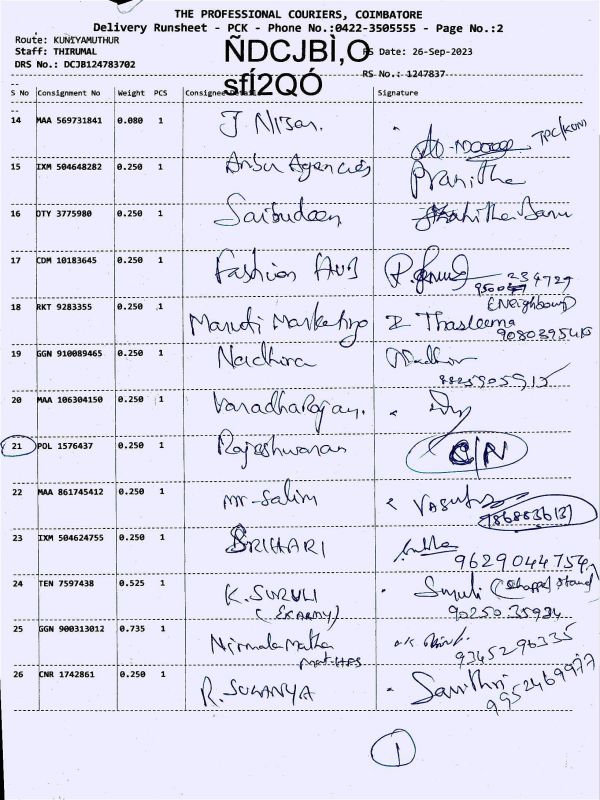 THE PROFESSIONAL COURIERS, COIMBATORE
Delivery Runsheet - PCK - Phone No.:0422-3505555 - Page No.:2
Route: KUNIYAMUTHUR
Staff: THIRUMAL Date: 26-Sep-2023
DRS No.: DCJB124783702 RS No.: 1247837
ÑDCJBÌ,O
sfÍ2QÓ
S No Consignment No Weight PCS Signature
14 MAA 569731841 0.080 1 J Nizar.
15 IXM 504648282 0.250 1 Anbu Agencies Pranitha
16 OTY 3775980 0.250 1 Saibudeen
17 CDM 10183645 0.250 1 Fashion Hub
18 RKT 9283355 0.250 1 Maruti Marketing Thasleema
(Neighbour)
19 GGN 910089465 0.250 1 Nadhira
20 MAA 106304150 0.250 1 Varadharajan.
21 POL 1576437 0.250 1 Rajeshwaran C/N
22 MAA 861745412 0.250 1 Mr-Salim
23 IXM 504624755 0.250 1 SRIHARI
9629044754
24 TEN 7597438 0.525 1 K. SURULI
(EXARMY) 9025035934
25 GGN 900313012 0.735 1 Nirmala Matha
Mat-HSS 9345296335
26 CNR 1742861 0.250 1 R. SUKANYA Savithri
9952469977
1